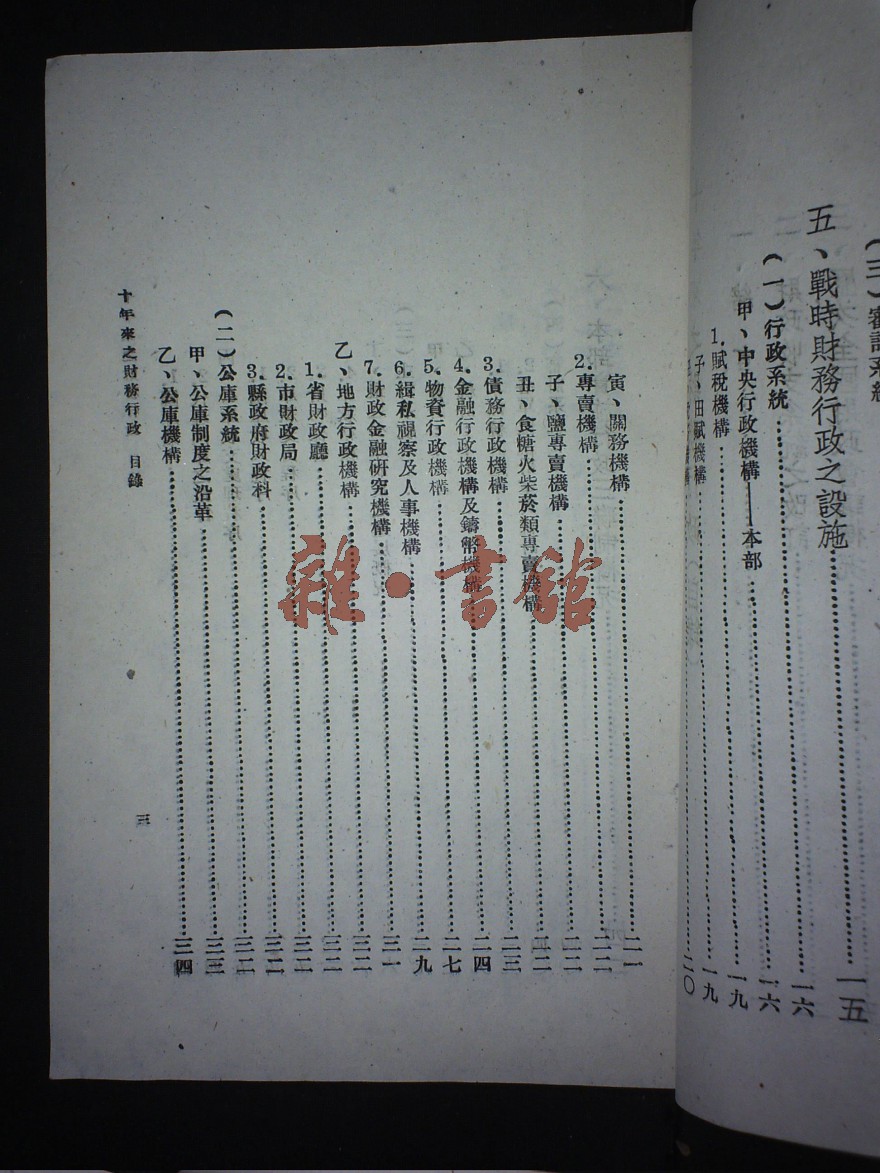 (三)審計系統
五、戰時財務行政之設施……一五
(一)行政系統……一六
甲、中央行政機構——本部……一六
1.賦稅機構……一九
子、田賦機構……一九
二〇
寅、關務機構……二一
2.專賣機構……二二
子、鹽專賣機構……二二
丑、食糖火柴菸類專賣機構……二二
3.債務行政機構……二三
4.金融行政機構及鑄幣機構……二四
5.物資行政機構……二七
6.緝私視察及人事機構……二九
7.財政金融研究機構……三一
乙、地方行政機構……三二
1.省財政廳……三二
2.市財政局……三二
3.縣政府財政科……三二
(二)公庫系統……三二
甲、公庫制度之沿革……三三
乙、公庫機構……三四
十年來之財務行政 目錄
三
雜·書館